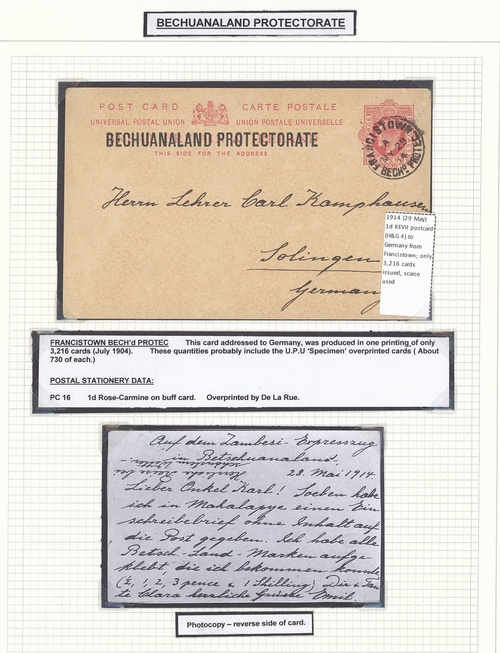 BECHUANALAND PROTECTORATE
POST CARD CARTE POSTALE
UNIVERSAL POSTAL UNION UNION POSTALE UNIVERSELLE
BECHUANALAND PROTECTORATE
THIS SIDE FOR THE ADDRESS
FRANCISTOWN
A
29
14
BECHD PROTEC
Herrn Lehrer Carl Kamphausen
Solingen
Germany
1914 (29 May)
1d KEVII postcard
(H&G 4) to
Germany from
Francistown; only
3,216 cards
issued, scarce
used
FRANCISTOWN BECH'd PROTEC This card addressed to Germany, was produced in one printing of only
3,216 cards (July 1904). These quantities probably include the U.P.U 'Specimen' overprinted cards ( About
730 of each.)
POSTAL STATIONERY DATA:
PC 16 1d Rose-Carmine on buff card. Overprinted by De La Rue.
Auf dem Zambesi-Expresszug
in Betschuanaland,
28. Mai 1914.
Lieber Onkel Karl! Soeben habe
ich in Mahalapye einen Ein
schreibebrief ohne Inhalt auf
die Post gegeben. Ich habe alle
Betsch-Land-Marken aufge-
klebt die ich bekommen konnte
(½, 1, 2, 3 pence & 1 Shilling) Dir & Tan
te Clara herzliche Grüsse Emil.
Photocopy – reverse side of card.